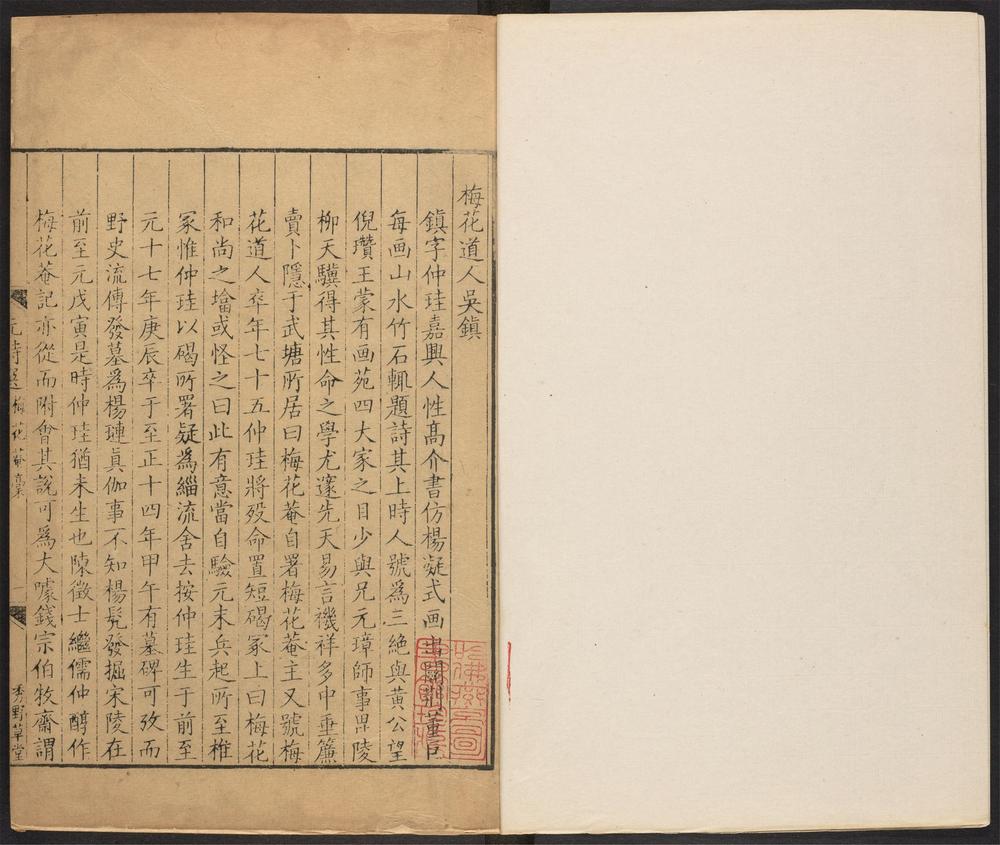 梅花道人吳鎮
鎮字仲珪嘉興人性髙介書仿楊凝式画出關荆董巨
每画山水竹石輒題詩其上時人號為三絶與黄公望
倪瓚王蒙有画苑四大家之目少與兄元璋師事毘陵
柳天驥得其性命之學尤邃先天易言禨祥多中垂簾
賣卜隱于武塘所居曰梅花菴自署梅花菴主又號梅
花道人卒年七十五仲珪將殁命置短碣冢上曰梅花
和尚之塔或怪之曰此有意當自驗元末兵起所至椎
冢惟仲珪以碣所署疑為緇流舍去按仲珪生于前至
元十七年庚辰卒于至正十四年甲午有墓碑可攷而
野史流傳發墓為楊璉真伽事不知楊髠發掘宋陵在
前至元戊寅是時仲珪猶未生也陳徵士繼儒仲醇作
梅花菴記亦從而附會其説可為大噱錢宗伯牧齋謂
元詩選 梅花菴稾 秀野草堂